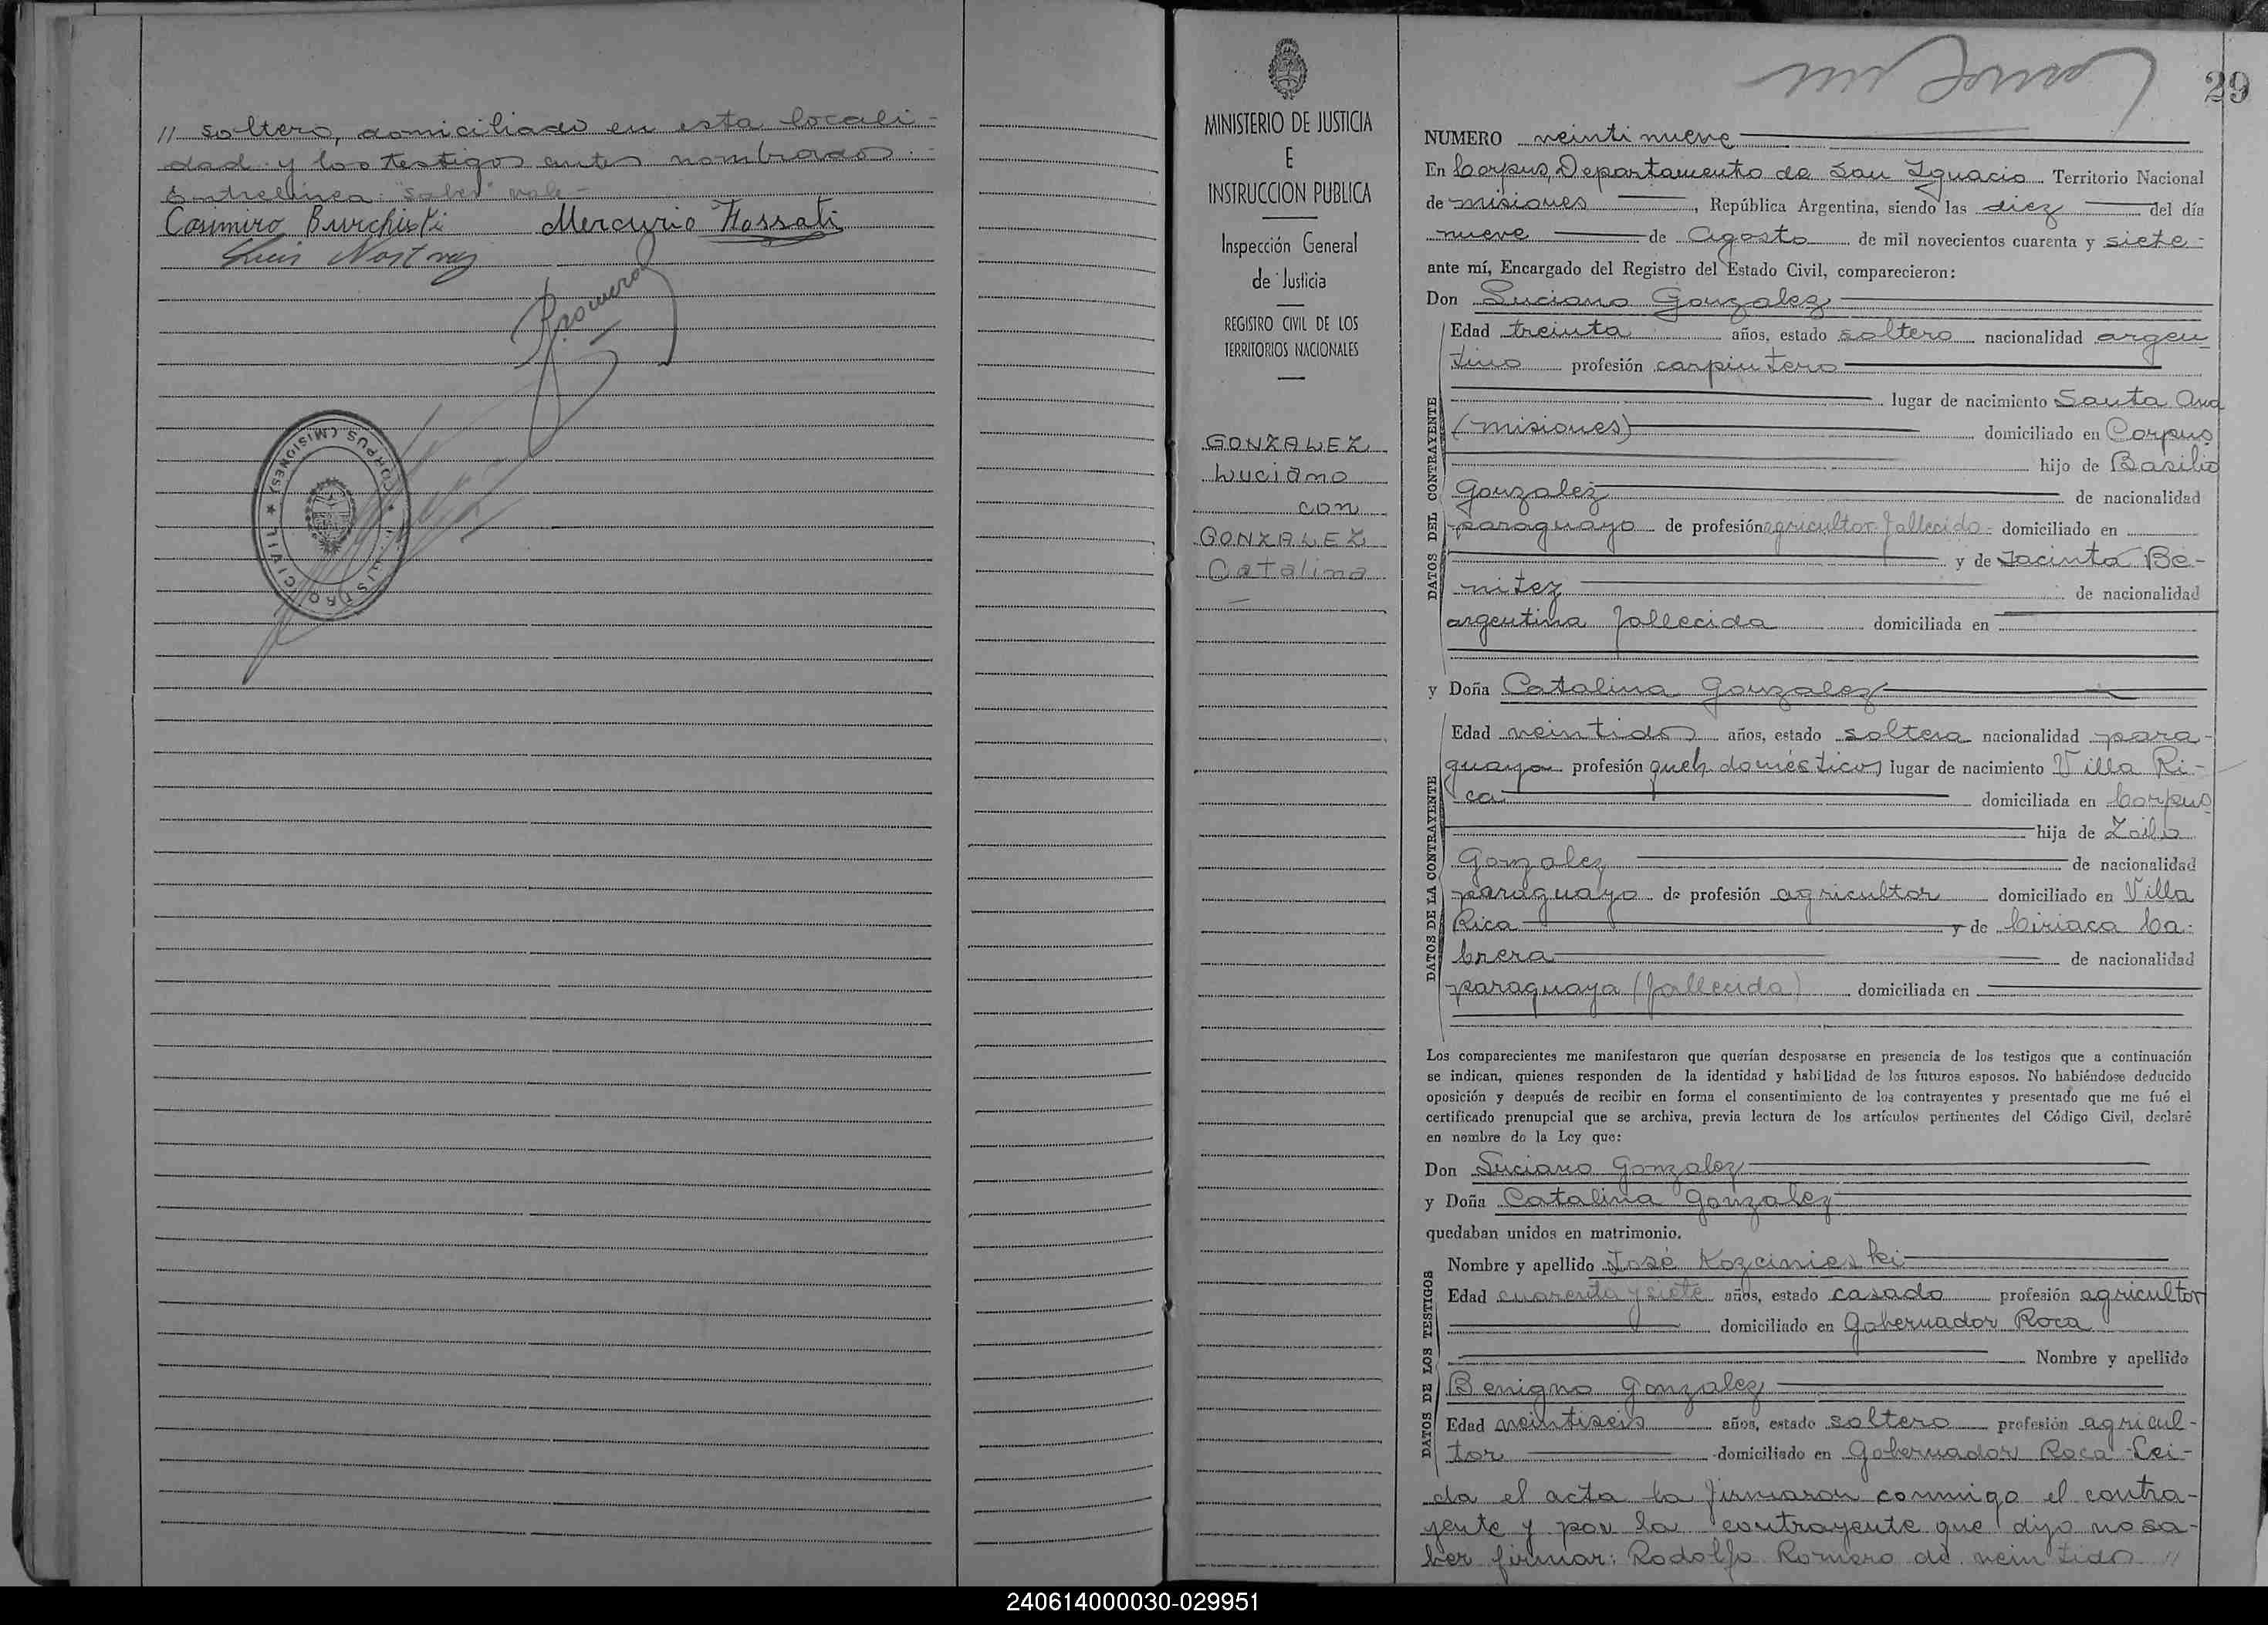 // soltero, domiciliado en esta locali-
dad y los testigos antes nombrados.
Entrelínea: "saber" vale-
Casimiro Burchiski Mercurio Fossati
Luis
Romero
REGISTRO CIVIL ★ CORPUS (MISIONES) ★
MINISTERIO DE JUSTICIA
E
INSTRUCCION PUBLICA
Inspección General
de Justicia
REGISTRO CIVIL DE LOS
TERRITORIOS NACIONALES
GONZALEZ
Luciano
con
GONZALEZ
Catalina
29
NUMERO veintinueve
En Corpus, Departamento de San Ignacio Territorio Nacional
de misiones, República Argentina, siendo las diez del día
nueve de Agosto de mil novecientos cuarenta y siete-
ante mí, Encargado del Registro del Estado Civil, comparecieron:
Don Luciano Gonzalez
DATOS DEL CONTRAYENTE
Edad treinta años, estado soltero nacionalidad argen-
tino profesión carpintero
lugar de nacimiento Santa Ana
(misiones) domiciliado en Corpus
hijo de Basilio
Gonzalez de nacionalidad
paraguayo de profesión agricultor fallecido- domiciliado en
y de Jacinta Be-
nitez de nacionalidad
argentina fallecida domiciliada en
y Doña Catalina Gonzalez
DATOS DE LA CONTRAYENTE
Edad veintidos años, estado soltera nacionalidad para-
guaya profesión queh. domésticos lugar de nacimiento Villa Ri-
ca domiciliada en Corpus
hija de Zoilo
Gonzalez de nacionalidad
paraguayo de profesión agricultor domiciliado en Villa
Rica y de Ciriaca Ca-
brera de nacionalidad
paraguaya (fallecida) domiciliada en
Los comparecientes me manifestaron que querían desposarse en presencia de los testigos que a continuación
se indican, quienes responden de la identidad y habilidad de los futuros esposos. No habiéndose deducido
oposición y después de recibir en forma el consentimiento de los contrayentes y presentado que me fué el
certificado prenupcial que se archiva, previa lectura de los artículos pertinentes del Código Civil, declaré
en nombre de la Ley que:
Don Luciano Gonzalez
y Doña Catalina Gonzalez
quedaban unidos en matrimonio.
DATOS DE LOS TESTIGOS
Nombre y apellido José Kozcinieski
Edad cuarenta y siete años, estado casado profesión agricultor
domiciliado en Gobernador Roca
Nombre y apellido
Benigno Gonzalez
Edad veintiseis años, estado soltero profesión agricul-
tor domiciliado en Gobernador Roca- Lei-
da el acta la firmaron conmigo el contra-
yente y por la contrayente que dijo no sa-
ber firmar: Rodolfo Romero de veintidos //
240614000030-029951